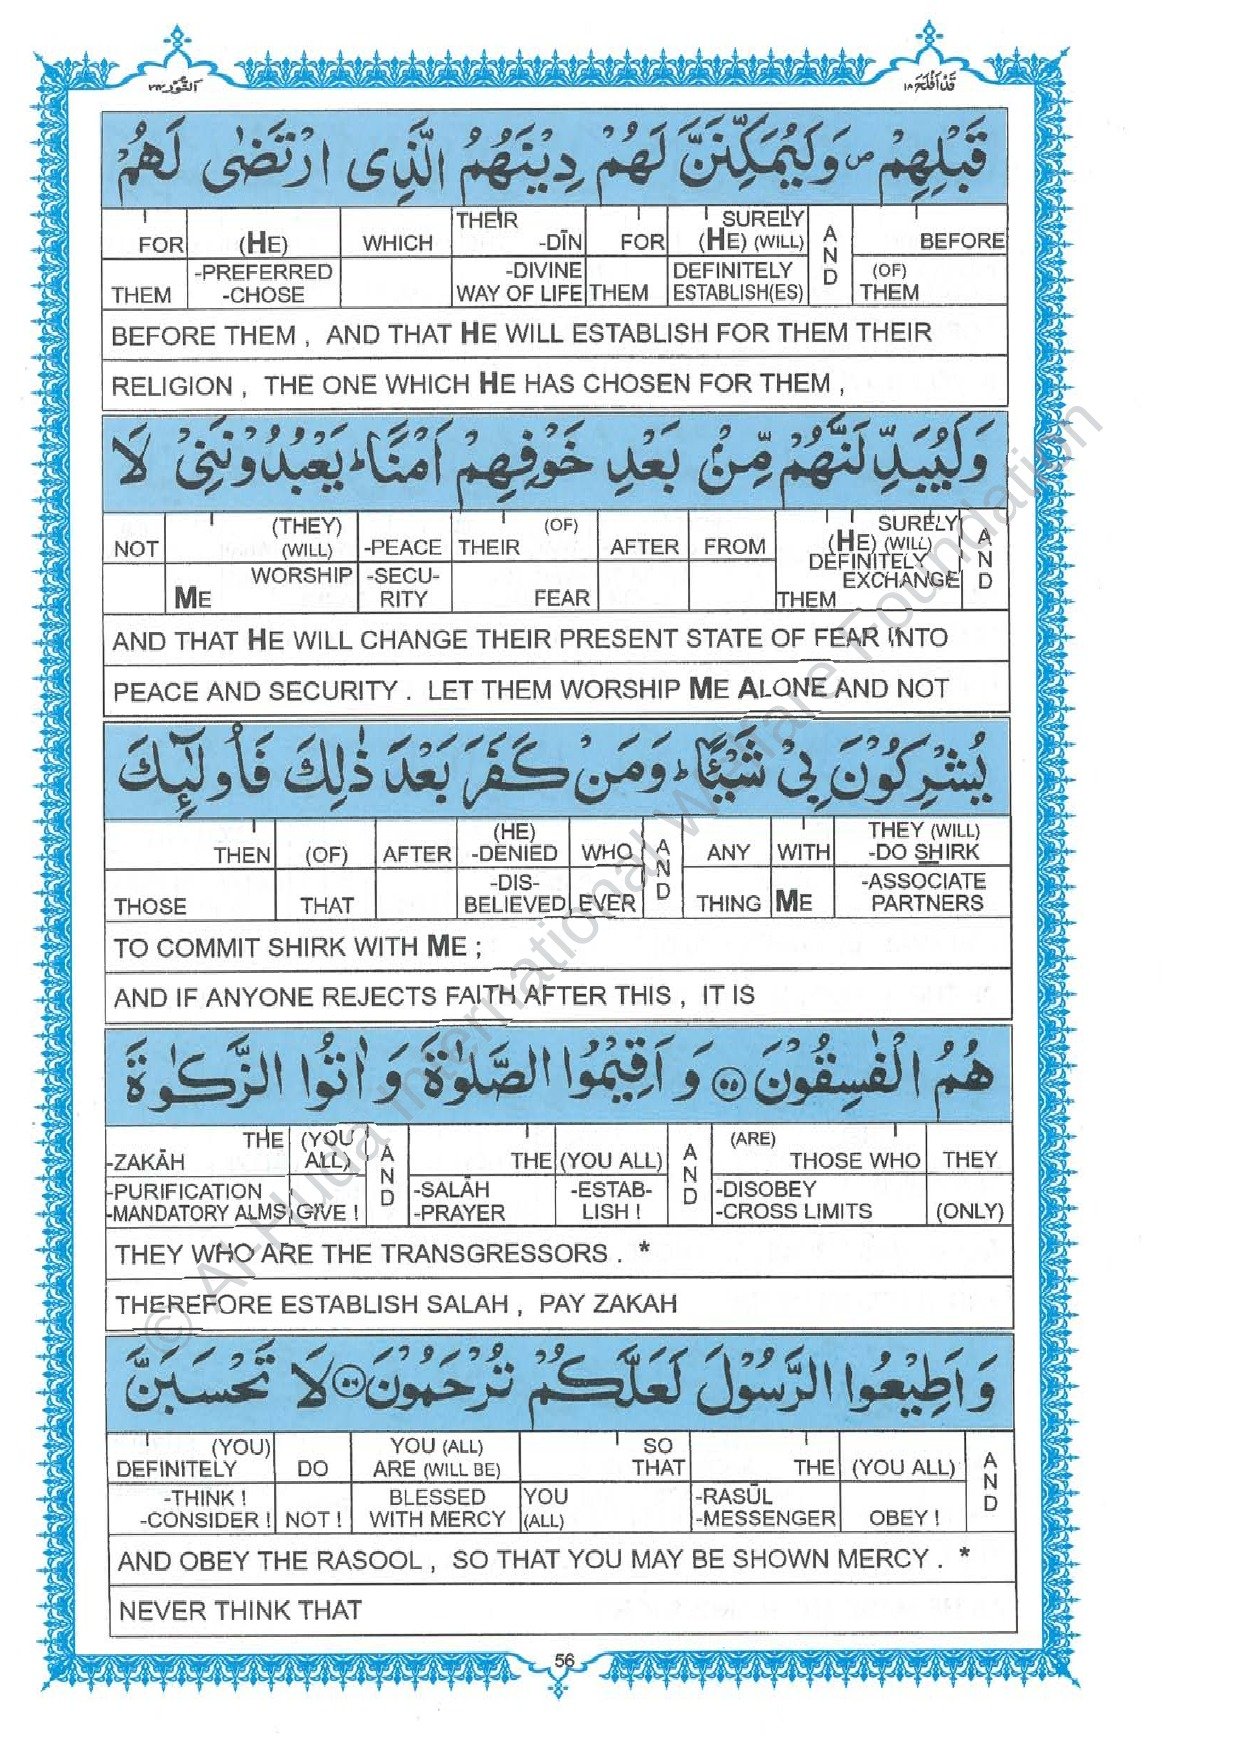 قَدْ اَفْلَحَ ١٨ اَلنُّوْر ٢٤
قَبْلِهِمْ ۪ وَلَيُمَكِّنَنَّ لَهُمْ دِيْنَهُمُ الَّذِى ارْتَضٰى لَهُمْ
FOR (HE) WHICH THEIR -DĪN FOR SURELY (HE) (WILL) AND BEFORE
THEM -PREFERRED -CHOSE -DIVINE WAY OF LIFE THEM DEFINITELY ESTABLISH(ES) (OF) THEM
BEFORE THEM , AND THAT HE WILL ESTABLISH FOR THEM THEIR
RELIGION , THE ONE WHICH HE HAS CHOSEN FOR THEM ,
وَلَيُبَدِّلَنَّهُمْ مِّنْۢ بَعْدِ خَوْفِهِمْ اَمْنًا ؕ يَعْبُدُوْنَنِيْ لَا
NOT (THEY) (WILL) -PEACE THEIR (OF) AFTER FROM SURELY (HE) (WILL) DEFINITELY EXCHANGE AND
WORSHIP ME -SECU- RITY FEAR THEM
AND THAT HE WILL CHANGE THEIR PRESENT STATE OF FEAR INTO
PEACE AND SECURITY . LET THEM WORSHIP ME ALONE AND NOT
يُشْرِكُوْنَ بِيْ شَيْئًا ؕ وَمَنْ كَفَرَ بَعْدَ ذٰلِكَ فَاُولٰٓئِكَ
THEN (OF) AFTER (HE) -DENIED WHO AND ANY WITH THEY (WILL) -DO SHIRK
THOSE THAT -DIS- BELIEVED EVER THING ME -ASSOCIATE PARTNERS
TO COMMIT SHIRK WITH ME ;
AND IF ANYONE REJECTS FAITH AFTER THIS , IT IS
هُمُ الْفٰسِقُوْنَ ۝٥٥ وَ اَقِيْمُوا الصَّلٰوةَ وَ اٰتُوا الزَّكٰوةَ
THE -ZAKĀH (YOU ALL) AND THE (YOU ALL) AND (ARE) THOSE WHO THEY
-PURIFICATION -MANDATORY ALMS GIVE ! -SALĀH -PRAYER -ESTAB- LISH ! -DISOBEY -CROSS LIMITS (ONLY)
THEY WHO ARE THE TRANSGRESSORS . *
THEREFORE ESTABLISH SALAH , PAY ZAKAH
وَ اَطِيْعُوا الرَّسُوْلَ لَعَلَّكُمْ تُرْحَمُوْنَ ۝٥٦ لَا تَحْسَبَنَّ
(YOU) DEFINITELY DO YOU (ALL) ARE (WILL BE) SO THAT THE (YOU ALL) AND
-THINK ! -CONSIDER ! NOT ! BLESSED WITH MERCY YOU (ALL) -RASŪL -MESSENGER OBEY !
AND OBEY THE RASOOL , SO THAT YOU MAY BE SHOWN MERCY . *
NEVER THINK THAT
56
© Al-Huda International Welfare Foundation